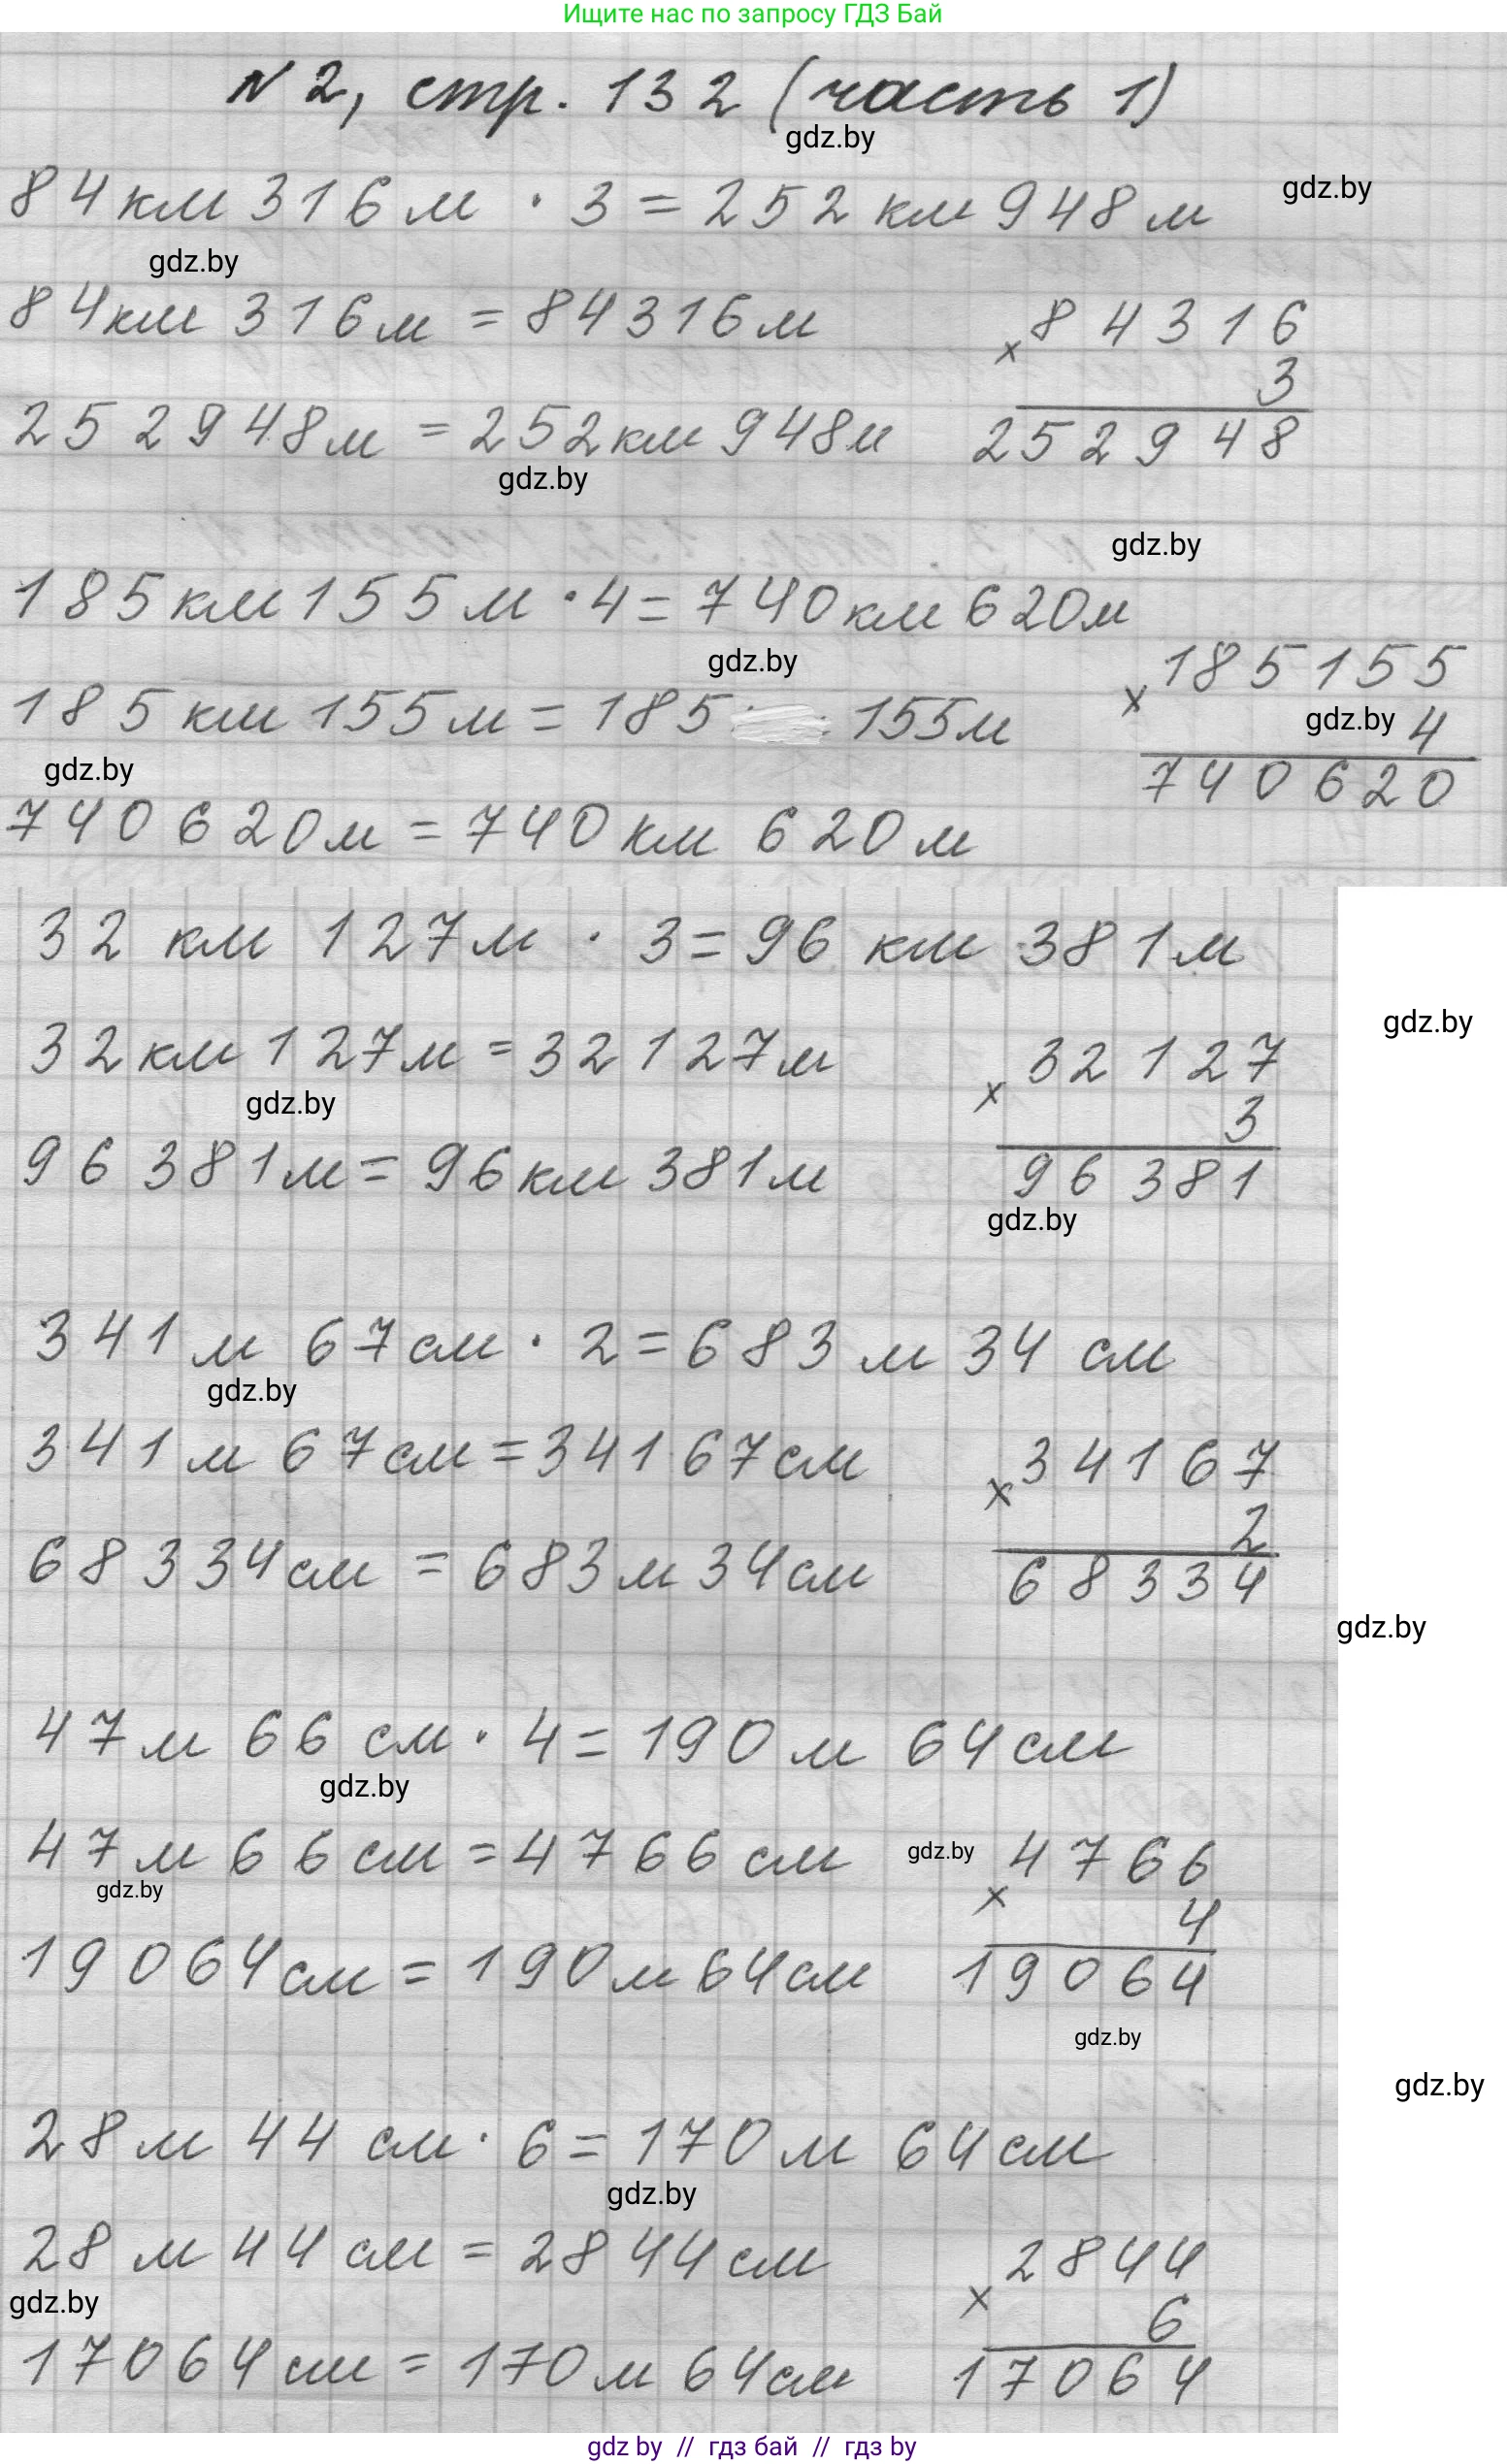 Ищите нас по запросу ГДЗ Бай
N 2, стр. 132 (часть 1)
gdz.by
84 км 316 м · 3 = 252 км 948 м
gdz.by
gdz.by
84 км 316 м = 84316 м
× 84316
3
252948 м = 252 км 948 м
252948
gdz.by
gdz.by
185 км 155 м · 4 = 740 км 620 м
gdz.by
× 185155
185 км 155 м = 185 155 м
gdz.by
4
gdz.by
740620
740 620 м = 740 км 620 м
32 км 127 м · 3 = 96 км 381 м
gdz.by
32 км 127 м = 32127 м
× 32127
gdz.by
3
96 381 м = 96 км 381 м
96381
gdz.by
341 м 67 см · 2 = 683 м 34 см
gdz.by
341 м 67 см = 34167 см
× 34167
2
68334 см = 683 м 34 см
68334
gdz.by
47 м 66 см · 4 = 190 м 64 см
gdz.by
47 м 66 см = 4766 см
gdz.by
× 4766
gdz.by
4
19064 см = 190 м 64 см
19064
gdz.by
gdz.by
28 м 44 см · 6 = 170 м 64 см
gdz.by
28 м 44 см = 2844 см
× 2844
gdz.by
6
17064 см = 170 м 64 см
17064
gdz by // гдз бай // гдз by